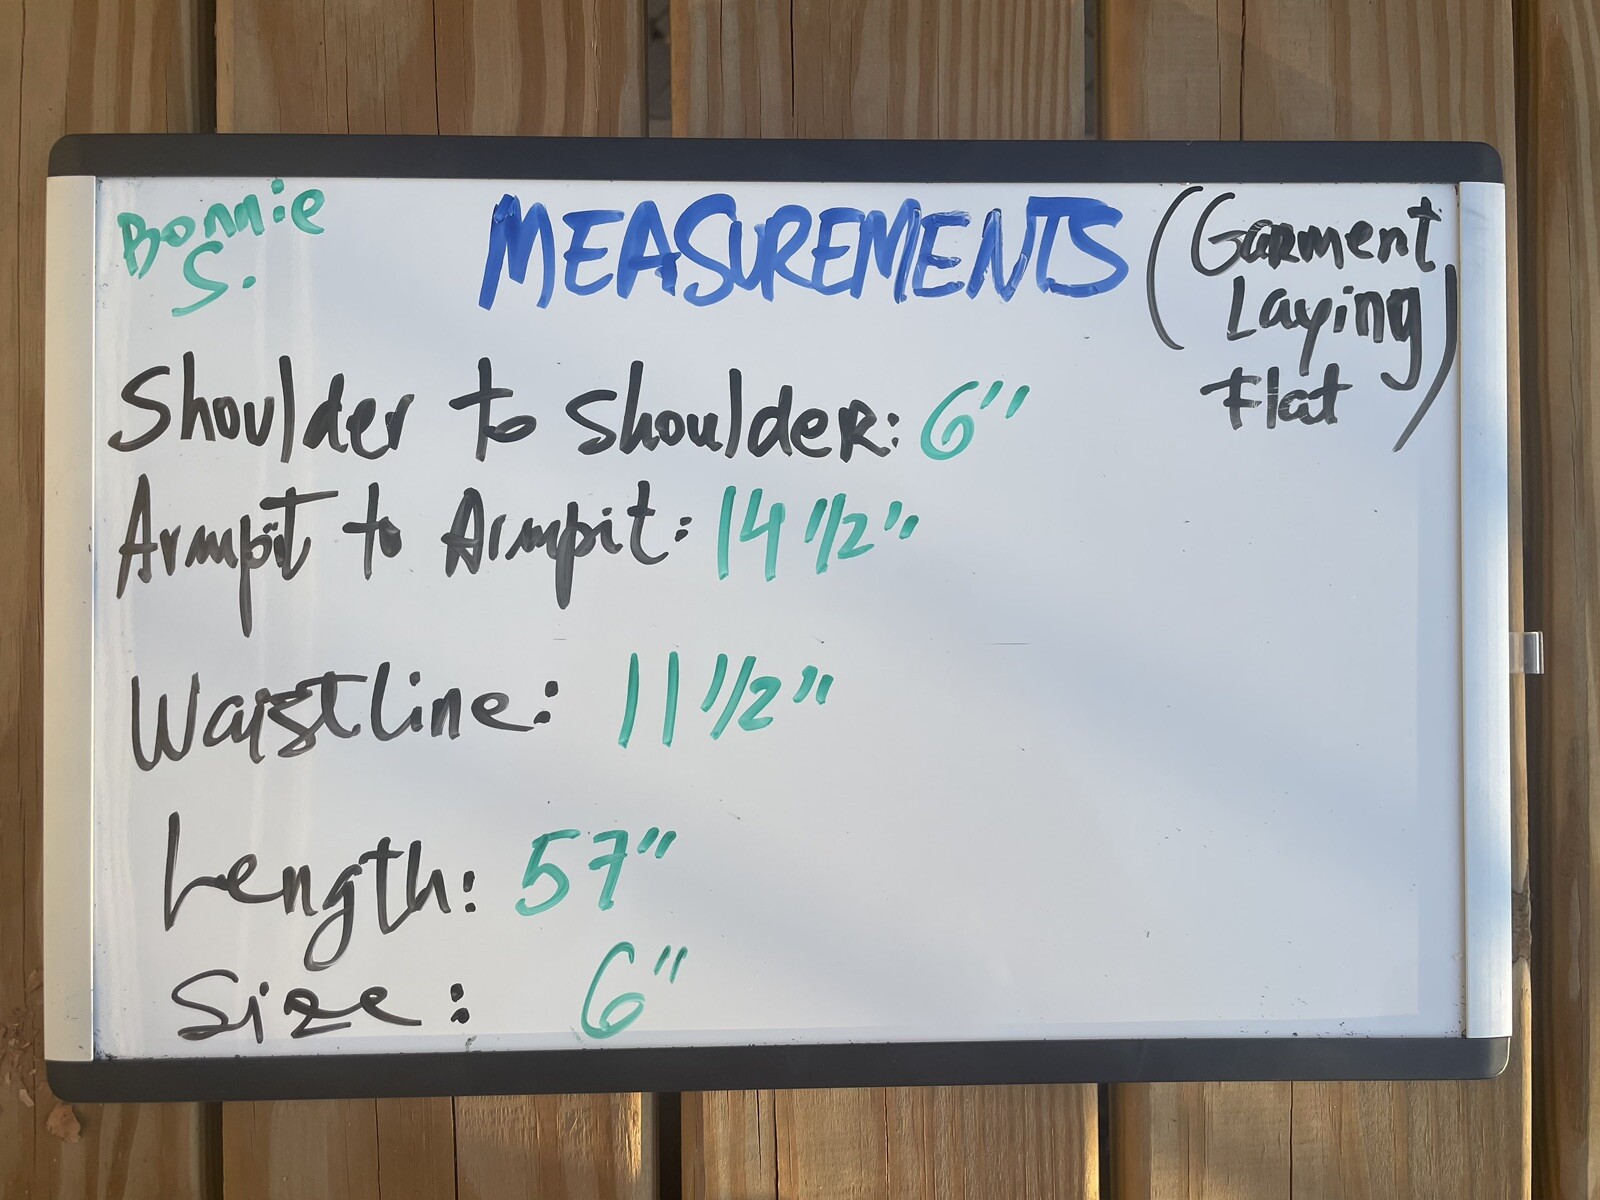 Bonnie
S.
MEASUREMENTS
(Garment
Laying)
Flat
Shoulder to shoulder: 6"
Armpit to Armpit: 14 1/2"
Waistline: 11 1/2"
Length: 57"
Size: 6"